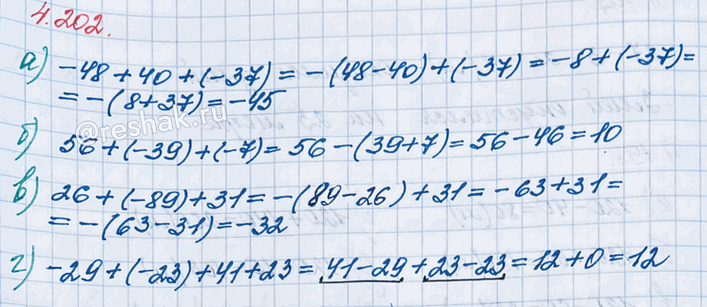 4.202.
а) -48+40+(-37)=-(48-40)+(-37)=-8+(-37)=
=-(8+37)=-45
@reshak.ru
б) 56+(-39)+(-7)=56-(39+7)=56-46=10
в) 26+(-89)+31=-(89-26)+31=-63+31=
=-(63-31)=-32
г) -29+(-23)+41+23=41-29+23-23=12+0=12